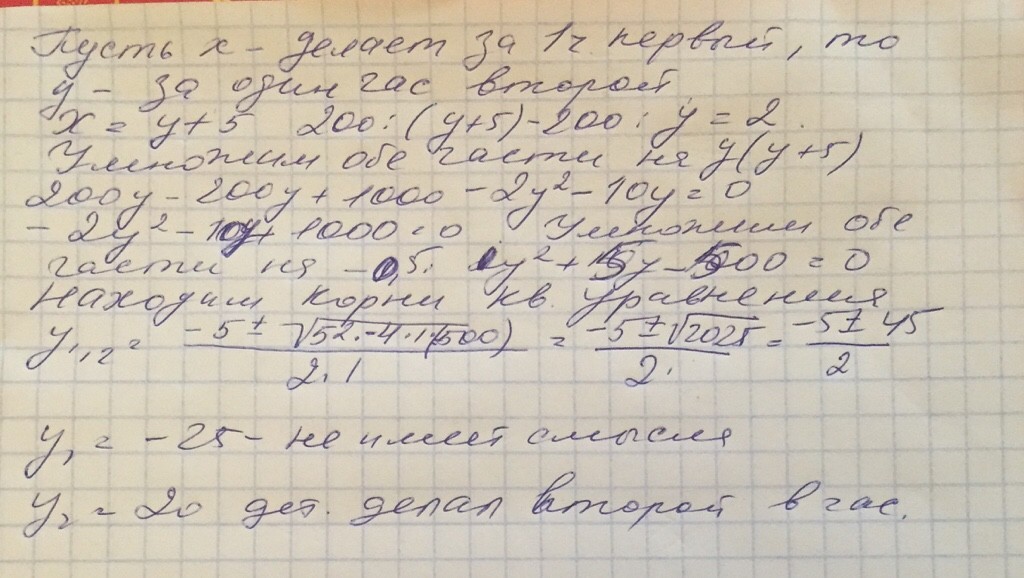 Пусть x - делает за 1ч первый, то
y - за один час второй
x = y+5 200:(y+5)-200:y=2.
Умножим обе части на y(y+5)
200y-200y+1000-2y²-10y=0
-2y²-10y+1000=0 Умножим обе
части на -0,5: 1y²+5y-500=0
Находим корни кв. уравнения
y₁,₂ = (-5±√(52.-4·1(500))/(2·1) = (-5±√2025)/2· = (-5±45)/2
y₁ = -25 - не имеет смысля
y₂ = 20 дет. делал второй в час.